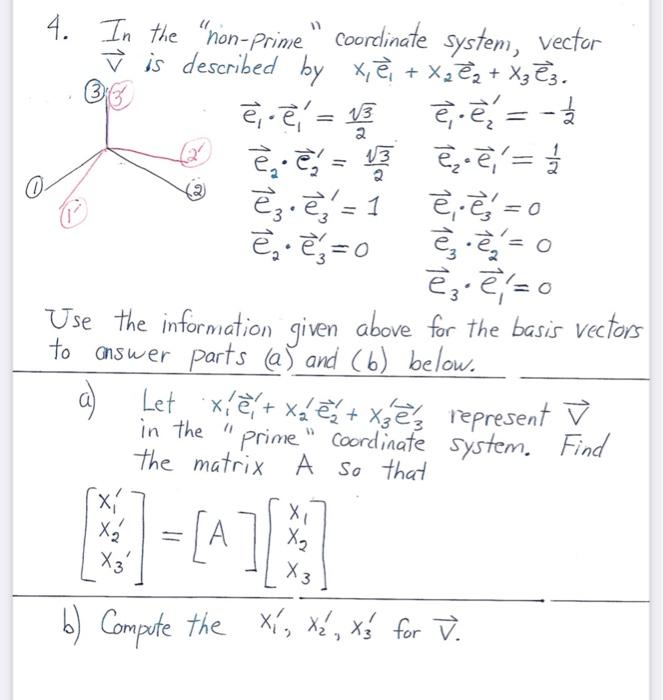 4. In the "non-prime" coordinate system, vector
v⃗ is described by x₁e⃗₁ + x₂e⃗₂ + x₃e⃗₃.
③ 3'
2'
① ②
1'
e⃗₁·e⃗₁' = √3/2 e⃗₁·e⃗₂' = -1/2
e⃗₂·e⃗₂' = √3/2 e⃗₂·e⃗₁' = 1/2
e⃗₃·e⃗₃' = 1 e⃗₁·e⃗₃' = 0
e⃗₂·e⃗₃' = 0 e⃗₃·e⃗₂' = 0
e⃗₃·e⃗₁' = 0
Use the information given above for the basis vectors
to answer parts (a) and (b) below.
a) Let x₁'e⃗₁' + x₂'e⃗₂' + x₃'e⃗₃' represent v⃗
in the "prime" coordinate system. Find
the matrix A so that
[x₁' x₂' x₃'] = [A] [x₁ x₂ x₃]
b) Compute the x₁', x₂', x₃' for v⃗.